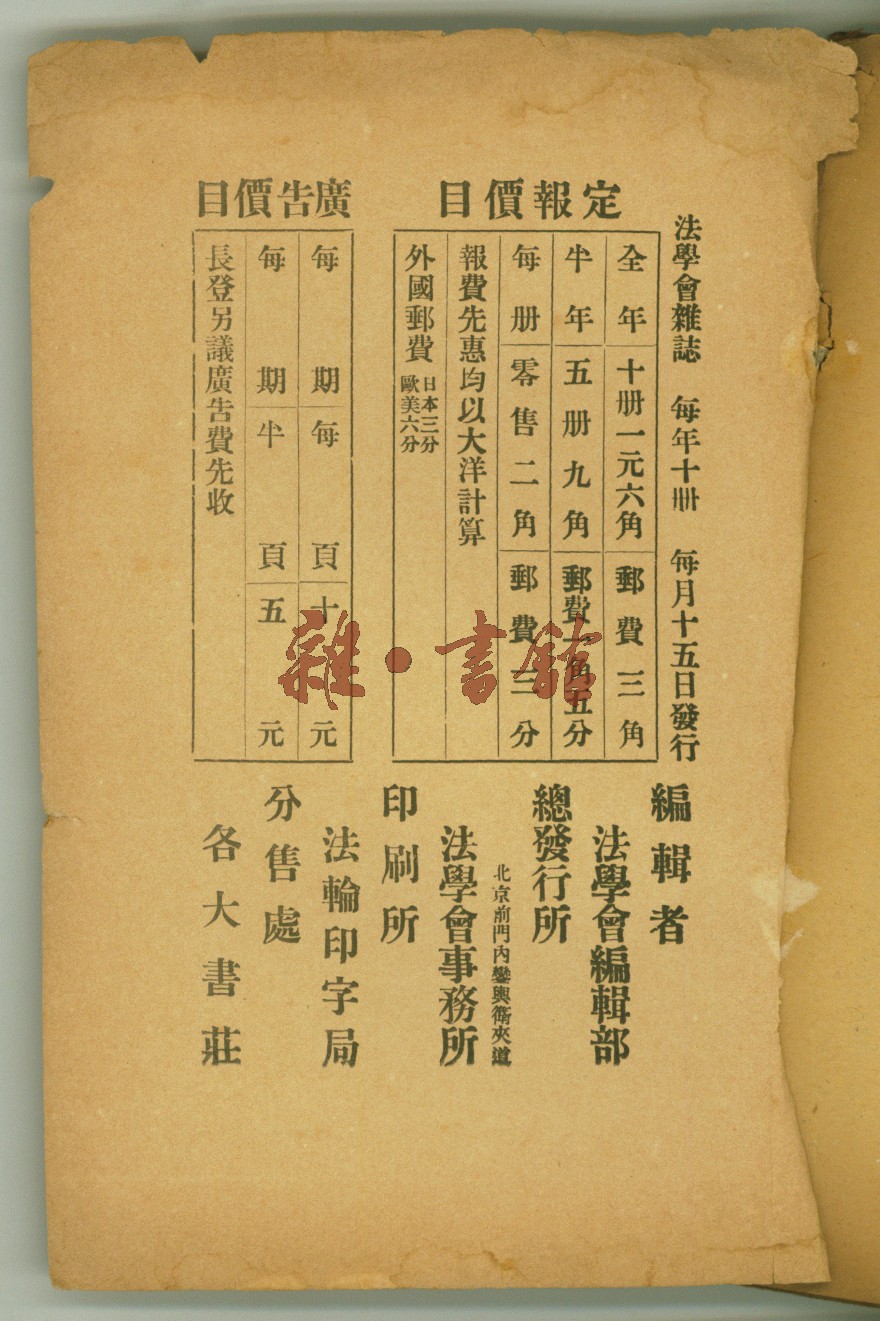 法學會雜誌　每年十冊　每月十五日發行
定報價目
全年　十冊一元六角　郵費三角
半年　五冊九角　郵費一角五分
每冊　零售二角　郵費三分
報費先惠均以大洋計算
外國郵費　日本三分
歐美六分
廣告價目
每期　每頁　十元
每期　半頁　五元
長登另議廣告費先收
編輯者
法學會編輯部
總發行所
北京前門內鑾輿衛夾道
法學會事務所
印刷所
法輪印字局
分售處
各大書莊
雜·書館